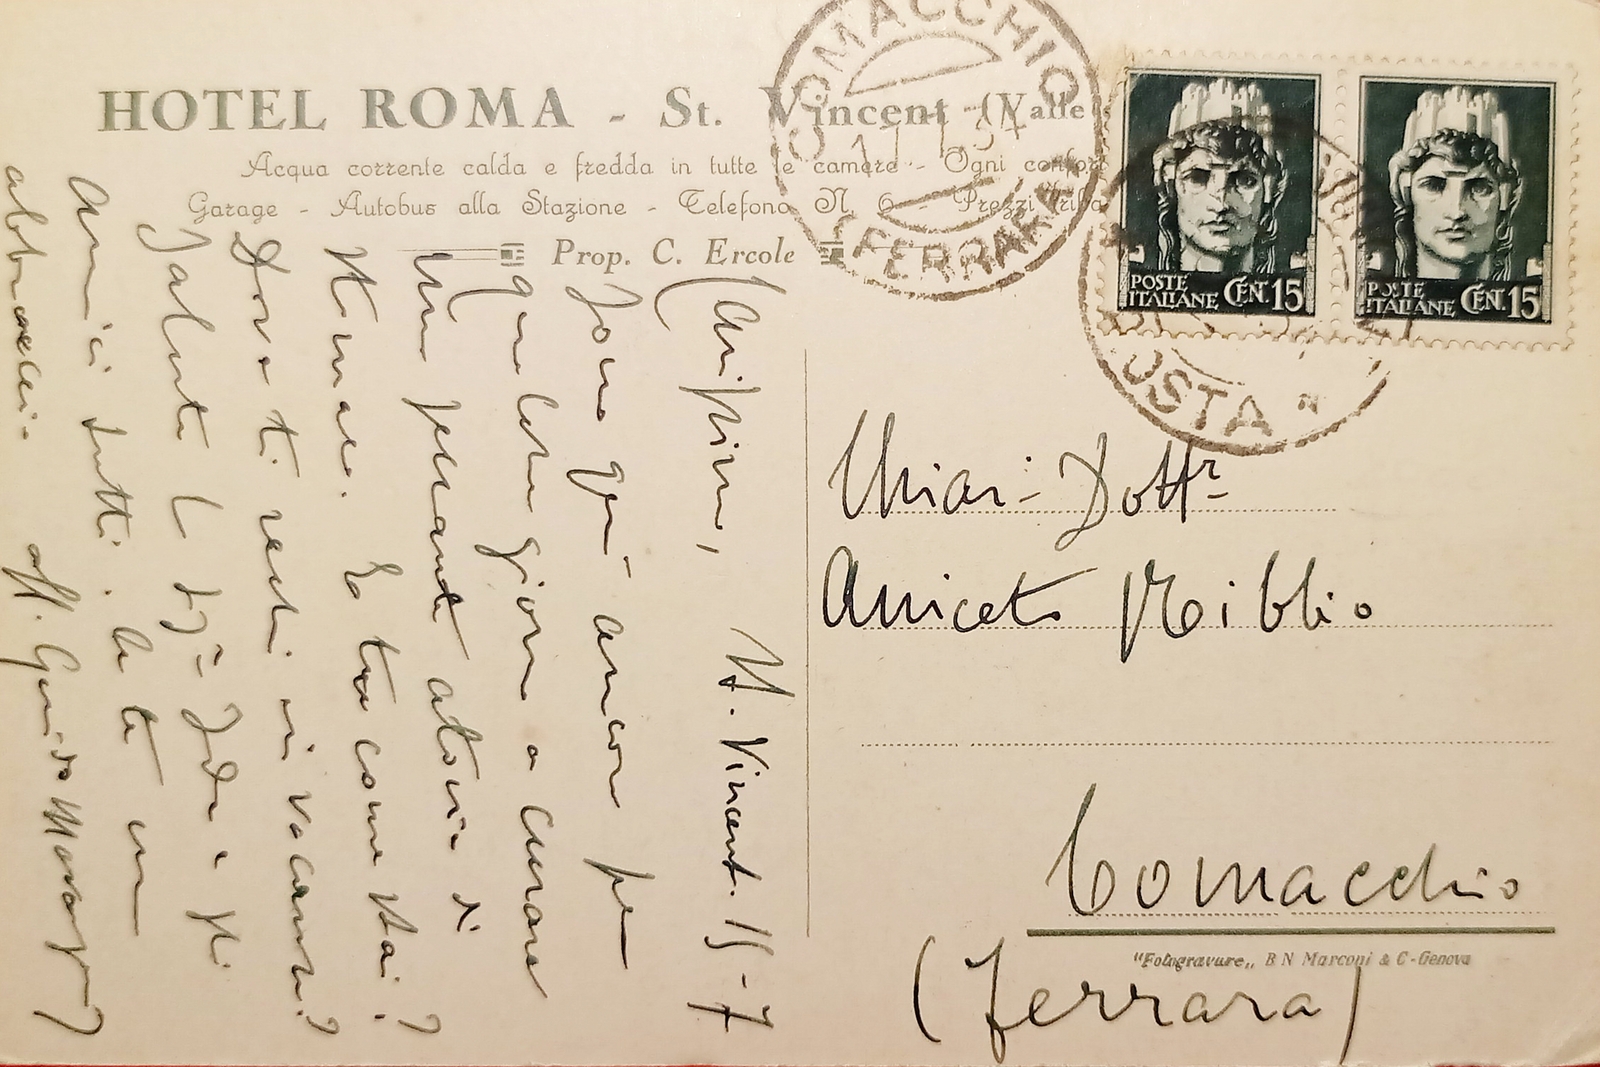 HOTEL ROMA - St. Vincent (Valle
Acqua corrente calda e fredda in tutte le camere - Ogni confort
Garage - Autobus alla Stazione - Telefono N. 6 - Prezzi
Prop. C. Ercole
COMACCHIO
(FERRARA)
POSTE ITALIANE CEN. 15
POSTE ITALIANE CEN. 15
OSTA
Carissimo, St. Vincent. 15-7
Sono qui ancora per
qualche giorno a curare
una pesante atonia di
stomaco. E tu come stai?
Dove ti rechi in vacanze?
Saluta la Sig.ª Ida e gli
amici tutti. A te un
abbraccio aff. Guido
Chiar. Dottr
Aniceto Nibbio
Comacchio
(Ferrara)
"Fotogravure„ B N Marconi & C - Genova